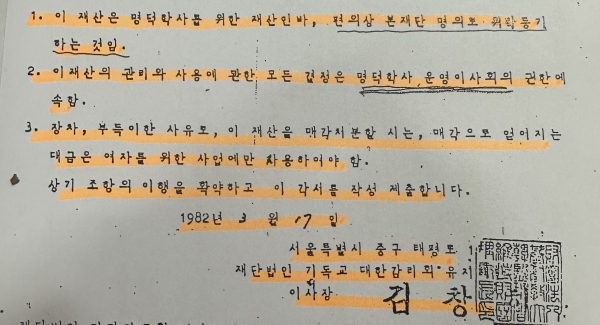 1. 이 재산은 명덕학사를 위한 재산인바, 편의상 본재단 명의로 위탁등기
하는 것임.
2. 이재산의 관리와 사용에 관한 모든 결정은 명덕학사 운영이사회의 권한에
속함.
3. 장차, 부득이한 사유로, 이 재산을 매각처분할 시는, 매각으로 얻어지는
대금은 여자를 위한 사업에만 사용하여야 함.
상기 조항의 이행을 확약하고 이 각서를 작성 제출합니다.
1982년 3 월 17 일
서울특별시 중구 태평로
재단법인 기독교 대한감리회 유지
이사장 김 창